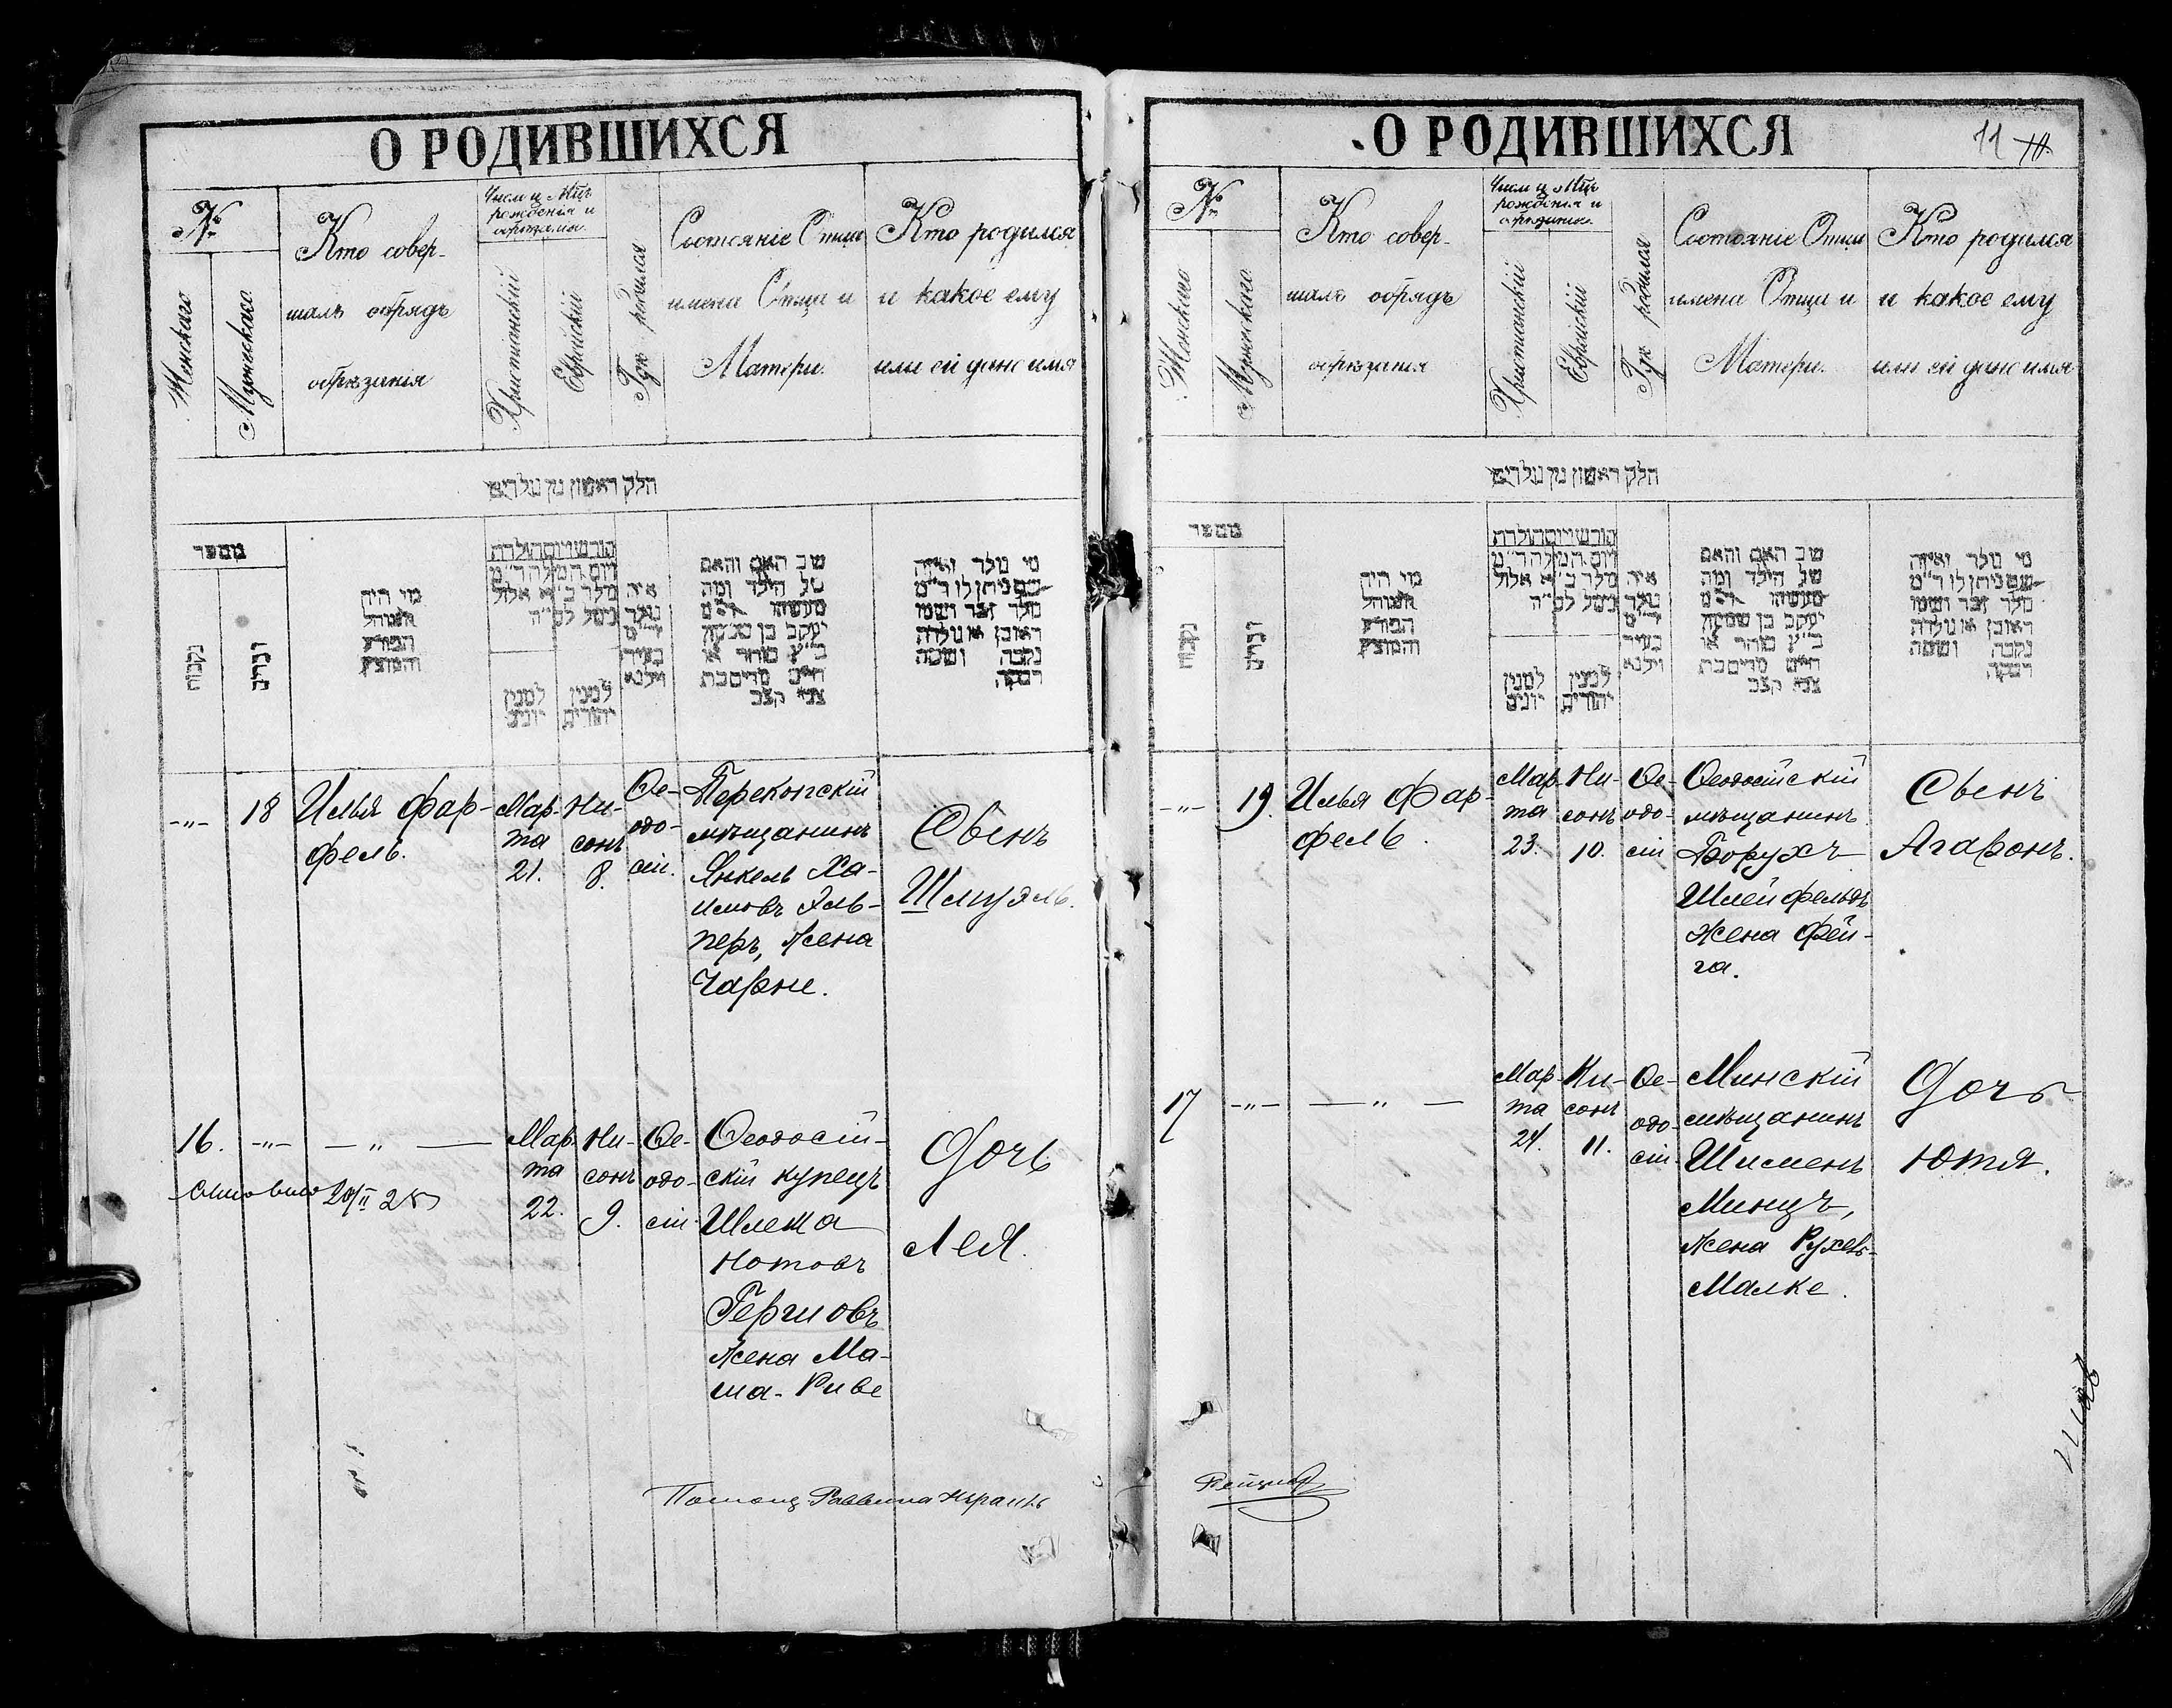 О РОДИВШИХСЯ
№
Женскаго
Мужескаго
Кто совер-
шалъ обрядъ
обрѣзанія
Число и Мѣц.
рожденія и
обрѣзанія.
Христіанскій
Еврейскій
Гдѣ родился
Состояніе Отца
имена Отца и
Матери.
Кто родился
и какое ему
или ей дано имя
חלק ראשון מן נולדים
מספר
נקבות
זכרים
מי היה
המוהל
הפורע
והמוצץ
למנין
יונים
למנין
יהודים
איה
נולד
בעיר
ווילנא
שם האם והאם
של הילד ומה
מעשהו
יעקב בן שמעון
ב״ע סוחר או
צבי קצב
מי נולד ואיזה
שם ניתן לו ד״מ
נולד זכר ושמו
ראובן או נולדה
נקבה ושמה
רבקה
-„- 18 Илья Фар-
фель.
Мар-
та
21.
Ни-
сонъ
8.
Ѳе-
одо-
сіи.
Перекопскій
мѣщанинъ
Янкель Ха-
имовъ Эль-
перъ, жена
Чарне.
Сынъ
Шмуэль.
16. -„- — „ —
Мар-
та
22.
Ни-
сонъ
9.
Ѳе-
одо-
сіи.
Ѳеодосій-
скій купецъ
Шлема
Нотовъ
Гершовъ
жена Ма-
ша-Риве
Дочь
Лея.
Помощ Раввина
О РОДИВШИХСЯ
11 10.
№
Женскаго
Мужескаго
Кто совер-
шалъ обрядъ
обрѣзанія
Число и Мѣц.
рожденія и
обрѣзанія.
Христіанскій
Еврейскій
Гдѣ родился
Состояніе Отца
имена Отца и
Матери.
Кто родился
и какое ему
или ей дано имя
חלק ראשון מן נולדים
מספר
נקבות
זכרים
מי היה
המוהל
הפורע
והמוצץ
למנין
יונים
למנין
יהודים
איה
נולד
בעיר
ווילנא
שם האם והאם
של הילד ומה
מעשהו
יעקב בן שמעון
ב״ע סוחר או
צבי קצב
מי נולד ואיזה
שם ניתן לו ד״מ
נולד זכר ושמו
ראובן או נולדה
נקבה ושמה
רבקה
-„- 19. Илья Фар-
фель.
Мар-
та
23.
Ни-
сонъ
10.
Ѳе-
одо-
сіи
Ѳеодосійскій
мѣщанинъ
Борухъ
Шлейфельдъ
жена Фей-
га.
Сынъ
Агаронъ.
17 -„- — „ —
Мар-
та
24.
Ни-
сонъ
11.
Ѳе-
одо-
сіи.
Минскій
мѣщанинъ
Шименъ
Минцъ,
жена Рухель-
Малке.
Дочь
Ютя.